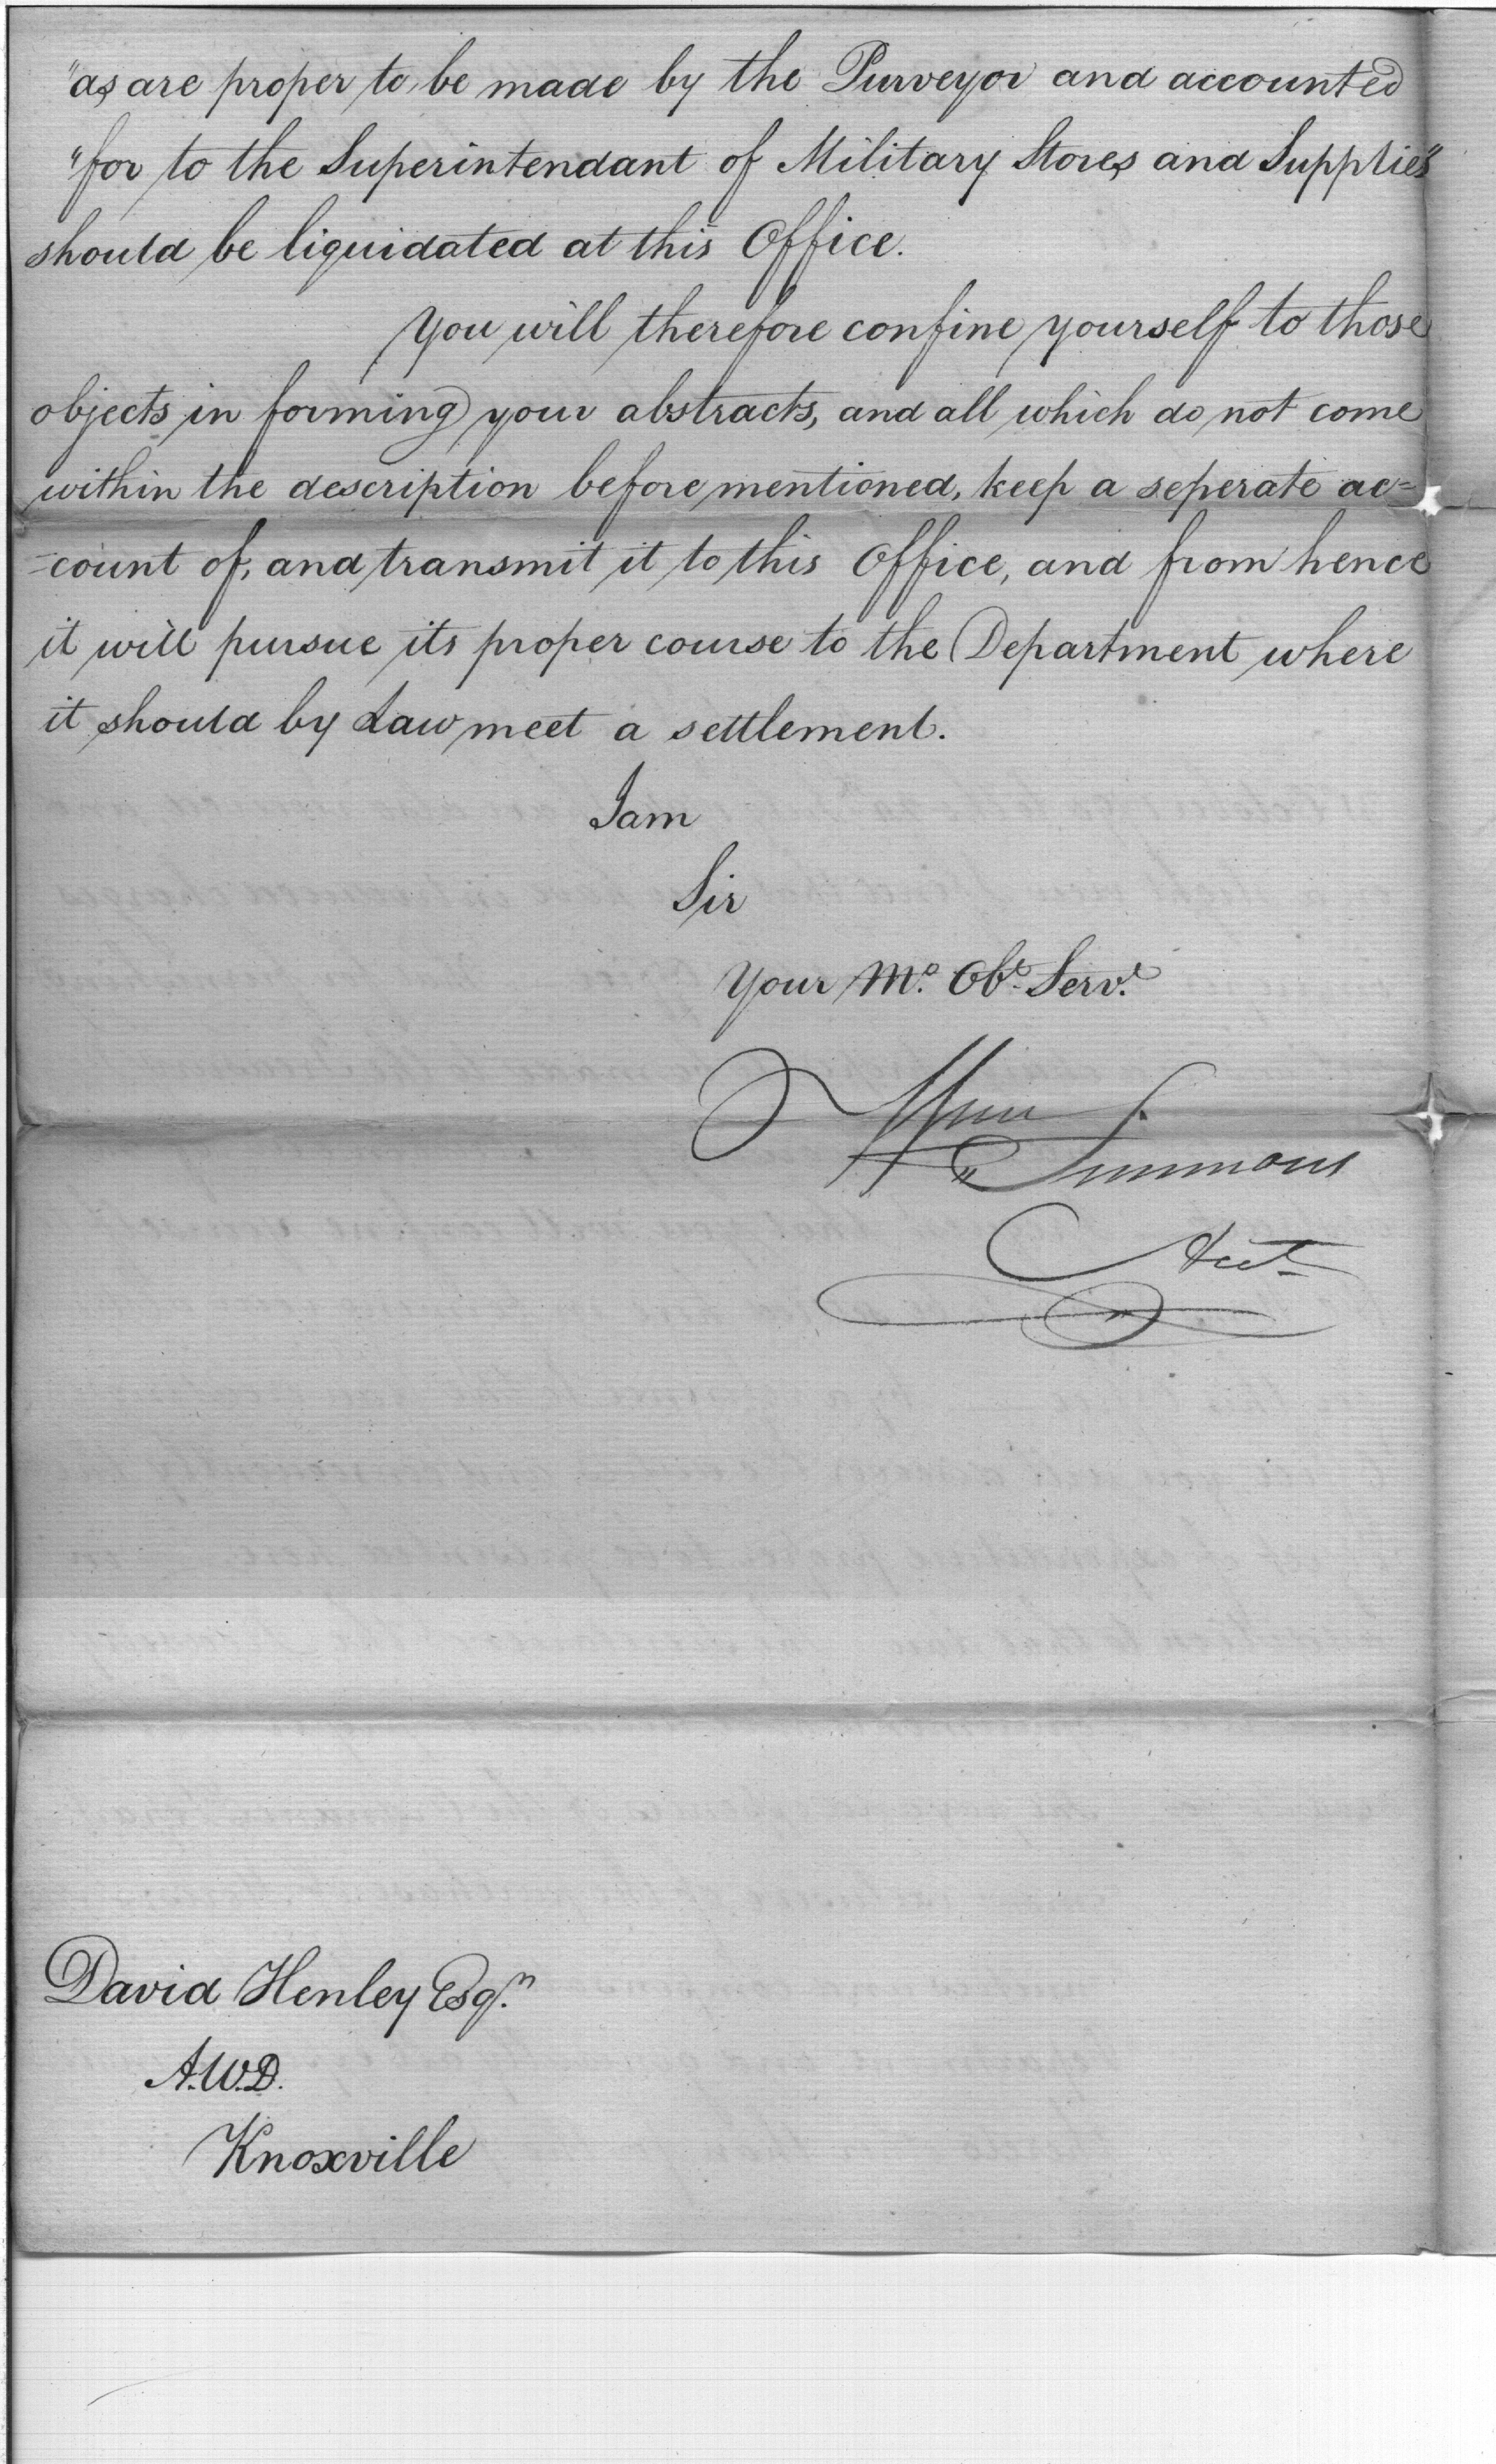 "as are proper to be made by the Purveyor and accounted
"for to the Superintendant of Military Stores and Supplies"
should be liquidated at this Office.
You will therefore confine yourself to those
objects in forming your abstracts, and all which do not come
within the description before mentioned, keep a seperate ac=
=count of, and transmit it to this Office, and from hence
it will pursue its proper course to the Department where
it should by Law meet a settlement.
I am
Sir
Your Mo. Obt. Servt.
Wm Simmons
Acct
David Henley Esqr.
A.W.D.
Knoxville